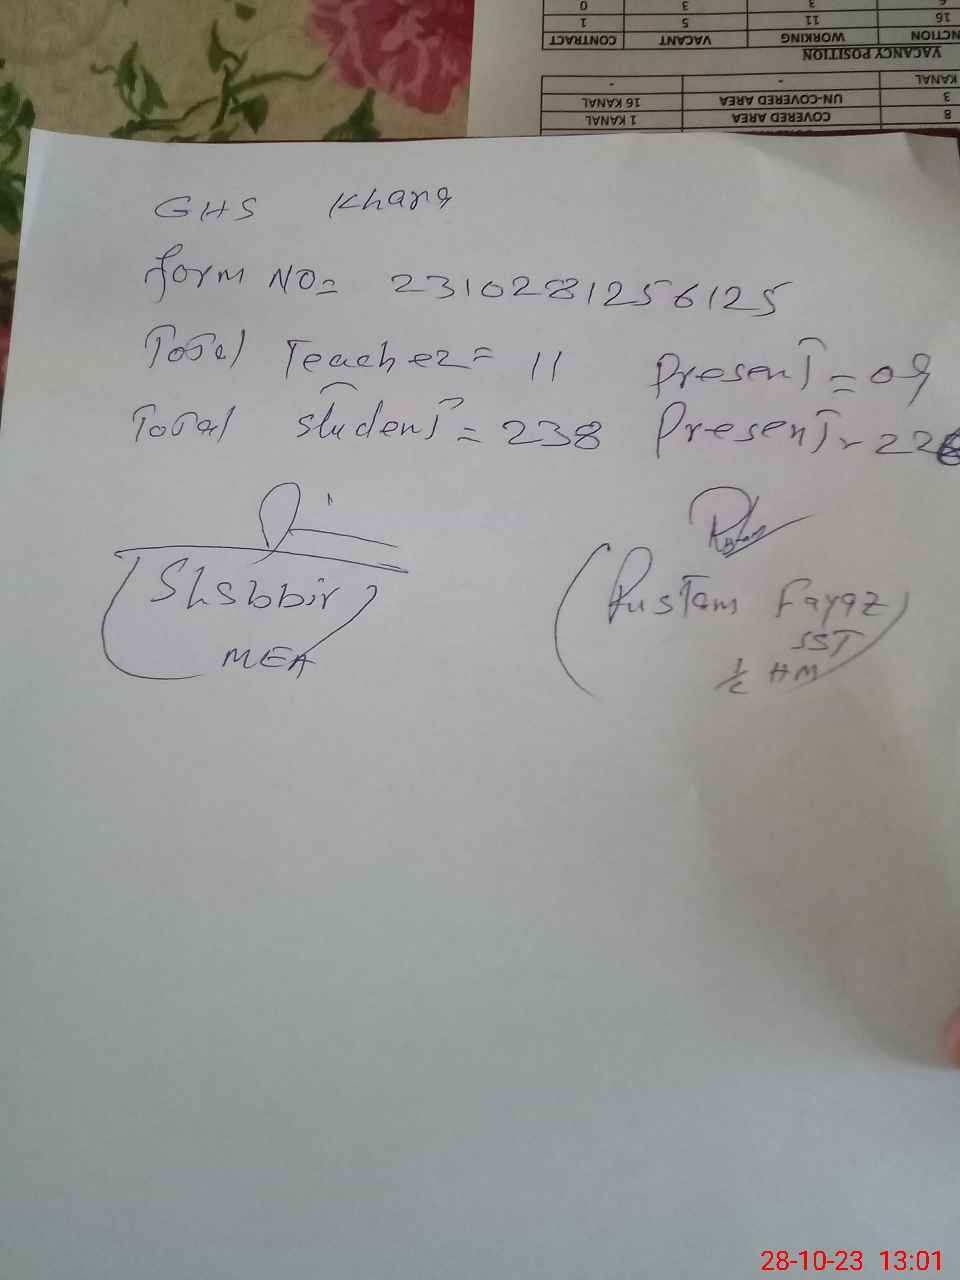 6 3 3 0
16 11 5 1
NCTION WORKING VACANT CONTRACT
VACANCY POSITION
KANAL - -
3 UN-COVERED AREA 16 KANAL
8 COVERED AREA 1 KANAL
GHS Khara
form NO= 2310281256125
Total Teacher = 11 Present = 09
Total student = 238 Present = 226
Shabbir
MEA
Rustam Fayaz
SST
I/C HM
28-10-23 13:01